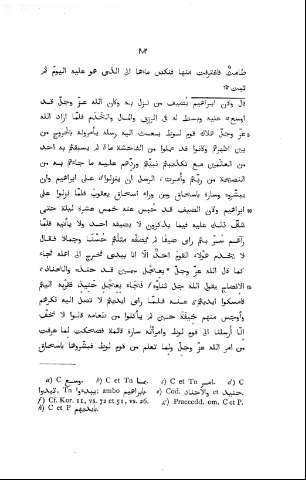 ٢٧٣
طامث فاغترفت منها فنكس ماءها الى الذى هو عليه اليوم ثم
ثبت ۞
قال وكان ابراهيم يضيف من نزل به وكان الله عز وجل قد
اوسع عليه وبسط له فى الرزق والمال والخدم فلما اراد الله
عز وجل هلاك قوم لوط بعث اليه رسله يأمرونه بالخروج من
بين اظهرهم وكانوا قد عملوا من الفاحشة ما لم يسبقهم به احد
من العالمين مع تكذيبهم نبيهم وردهم عليه ما جاءهم به من
النصيحة من ربهم وأمرت الرسل ان ينزلوا على ابراهيم وان
يبشروه وسارة باسحاق ومن وراء اسحاق يعقوب فلما نزلوا على
ابراهيم وكان الضيف قد حبس عنه خمس عشرة ليلة حتى
شق ذلك عليه فيما يذكرون لا يضيفه احد ولا يأتيه فلما
رآهم سر بهم رأى ضيفا لم يضفه مثلهم حسنا وجمالا فقال
لا يخدم هؤلاء القوم احد الا انا بيدى فخرج الى اهله فجاء
كما قال الله عز وجل بعجل سمين قد حنذه والحناذ
الانضاج يقول الله جل ثناؤه فجاء بعجل حنيذ فقربه اليهم
فأمسكوا ايديهم عنه فلما رأى ايديهم لا تصل اليه نكرهم
وأوجس منهم خيفة حين لم يأكلوا من طعامه قالوا لا تخف
انا أرسلنا الى قوم لوط وامرأته سارة قائمة فضحكت لما عرفت
من امر الله عز وجل ولما تعلم من قوم لوط فبشروها باسحاق
a) C وسع. b) C et Tn بما. c) C et Tn امر. d) C
تبدوا, Tn بيدوا; ambo بابراهيم. e) Cod. والاحناذ et حنيذه.
f) Cf. Kor. 11, vs. 72 et 51, vs. 26. g) Praecedd. om. C et P.
h) C et P بايديهم.